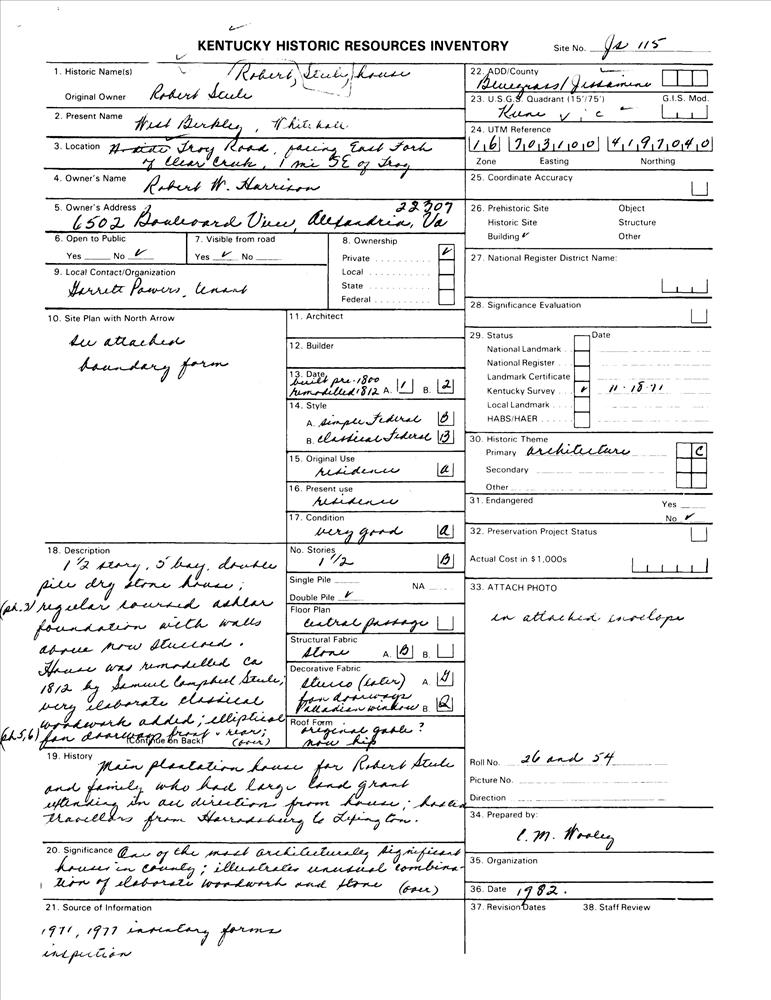 KENTUCKY HISTORIC RESOURCES INVENTORY
Site No. Js 115
1. Historic Name(s) Robert Steele house
Original Owner Robert Steele
2. Present Name West Berkley, Whitehall
3. Location Troy Road, facing East Fork
of Clear Creek, 1 mi SE of Troy
4. Owner's Name Robert W. Harrison
5. Owner's Address 22307
6502 Boulevard View, Alexandria, Va
6. Open to Public
Yes No ✓
7. Visible from road
Yes ✓ No
8. Ownership
Private ✓
Local
State
Federal
9. Local Contact/Organization
Garrett Powers, tenant
10. Site Plan with North Arrow
see attached
boundary form
11. Architect
12. Builder
13. Date
built pre-1800
remodelled 1812 A. 1 B. 2
14. Style
A. simple Federal B
B. classical Federal B
15. Original Use
residence a
16. Present use
residence
17. Condition
very good a
18. Description
1½ story, 5 bay, double
pile dry stone house;
(ph.2) regular coursed ashlar
foundation with walls
above now stuccoed.
House was remodelled ca
1812 by Samuel Campbell Steele;
very elaborate classical
woodwork added; elliptical
(ph.5,6) fan doorways front & rear;
(Continue on Back) (over)
No. Stories
1 1/2 B
Single Pile NA
Double Pile ✓
Floor Plan
central passage
Structural Fabric
stone A. B B.
Decorative Fabric
stucco (later) A. g
fan doorways
Palladian window B. Q
Roof Form
original gable?
now hip
19. History
Main plantation house for Robert Steele
and family who had large land grant
extending in all direction from house; hosted
travellers from Harrodsburg to Lexington.
20. Significance One of the most architecturally significant
houses in county; illustrates unusual combina-
tion of elaborate woodwork and stone (over)
21. Source of Information
1971, 1977 inventory forms
inspection
22. ADD/County
Bluegrass/Jessamine
23. U.S.G.S. Quadrant (15'/75') G.I.S. Mod.
Keene
24. UTM Reference
16 703100 4197040
Zone Easting Northing
25. Coordinate Accuracy
26. Prehistoric Site Object
Historic Site Structure
Building ✓ Other
27. National Register District Name:
28. Significance Evaluation
29. Status Date
National Landmark
National Register
Landmark Certificate
Kentucky Survey ✓ 11-18-71
Local Landmark
HABS/HAER
30. Historic Theme
Primary architecture C
Secondary
Other
31. Endangered Yes
No ✓
32. Preservation Project Status
Actual Cost in $1,000s
33. ATTACH PHOTO
in attached envelope
Roll No. 26 and 54
Picture No.
Direction
34. Prepared by:
C.M. Wooley
35. Organization
36. Date 1982.
37. Revision Dates 38. Staff Review